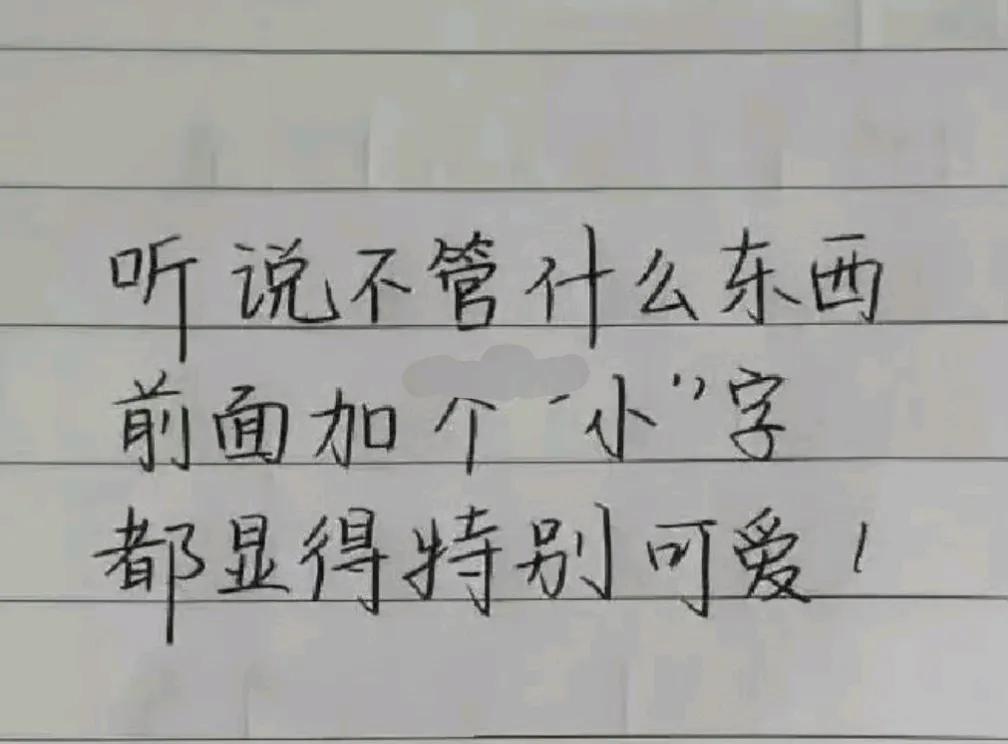 听说不管什么东西
前面加个“小”字
都显得特别可爱！